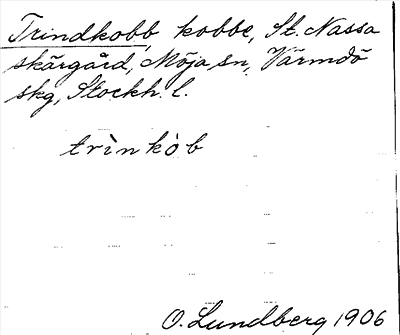 Trindkobb, kobbe, St. Nassa
skärgård, Möja sn, Värmdö
skg, Stockh. l.
trìnkòb
O. Lundberg 1906